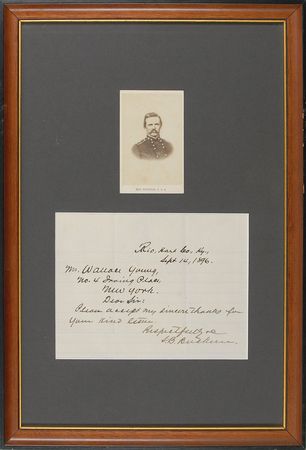 GEN. BUCKNER, C. S. A.
Rio, Hart Co, Ky,
Sept 14, 1896.
Mr. Wallace Young,
No. 4 Irving Place,
New York.
Dear Sir:
Please accept my sincere thanks for
your kind letter.
Respectfully,
S. B. Buckner